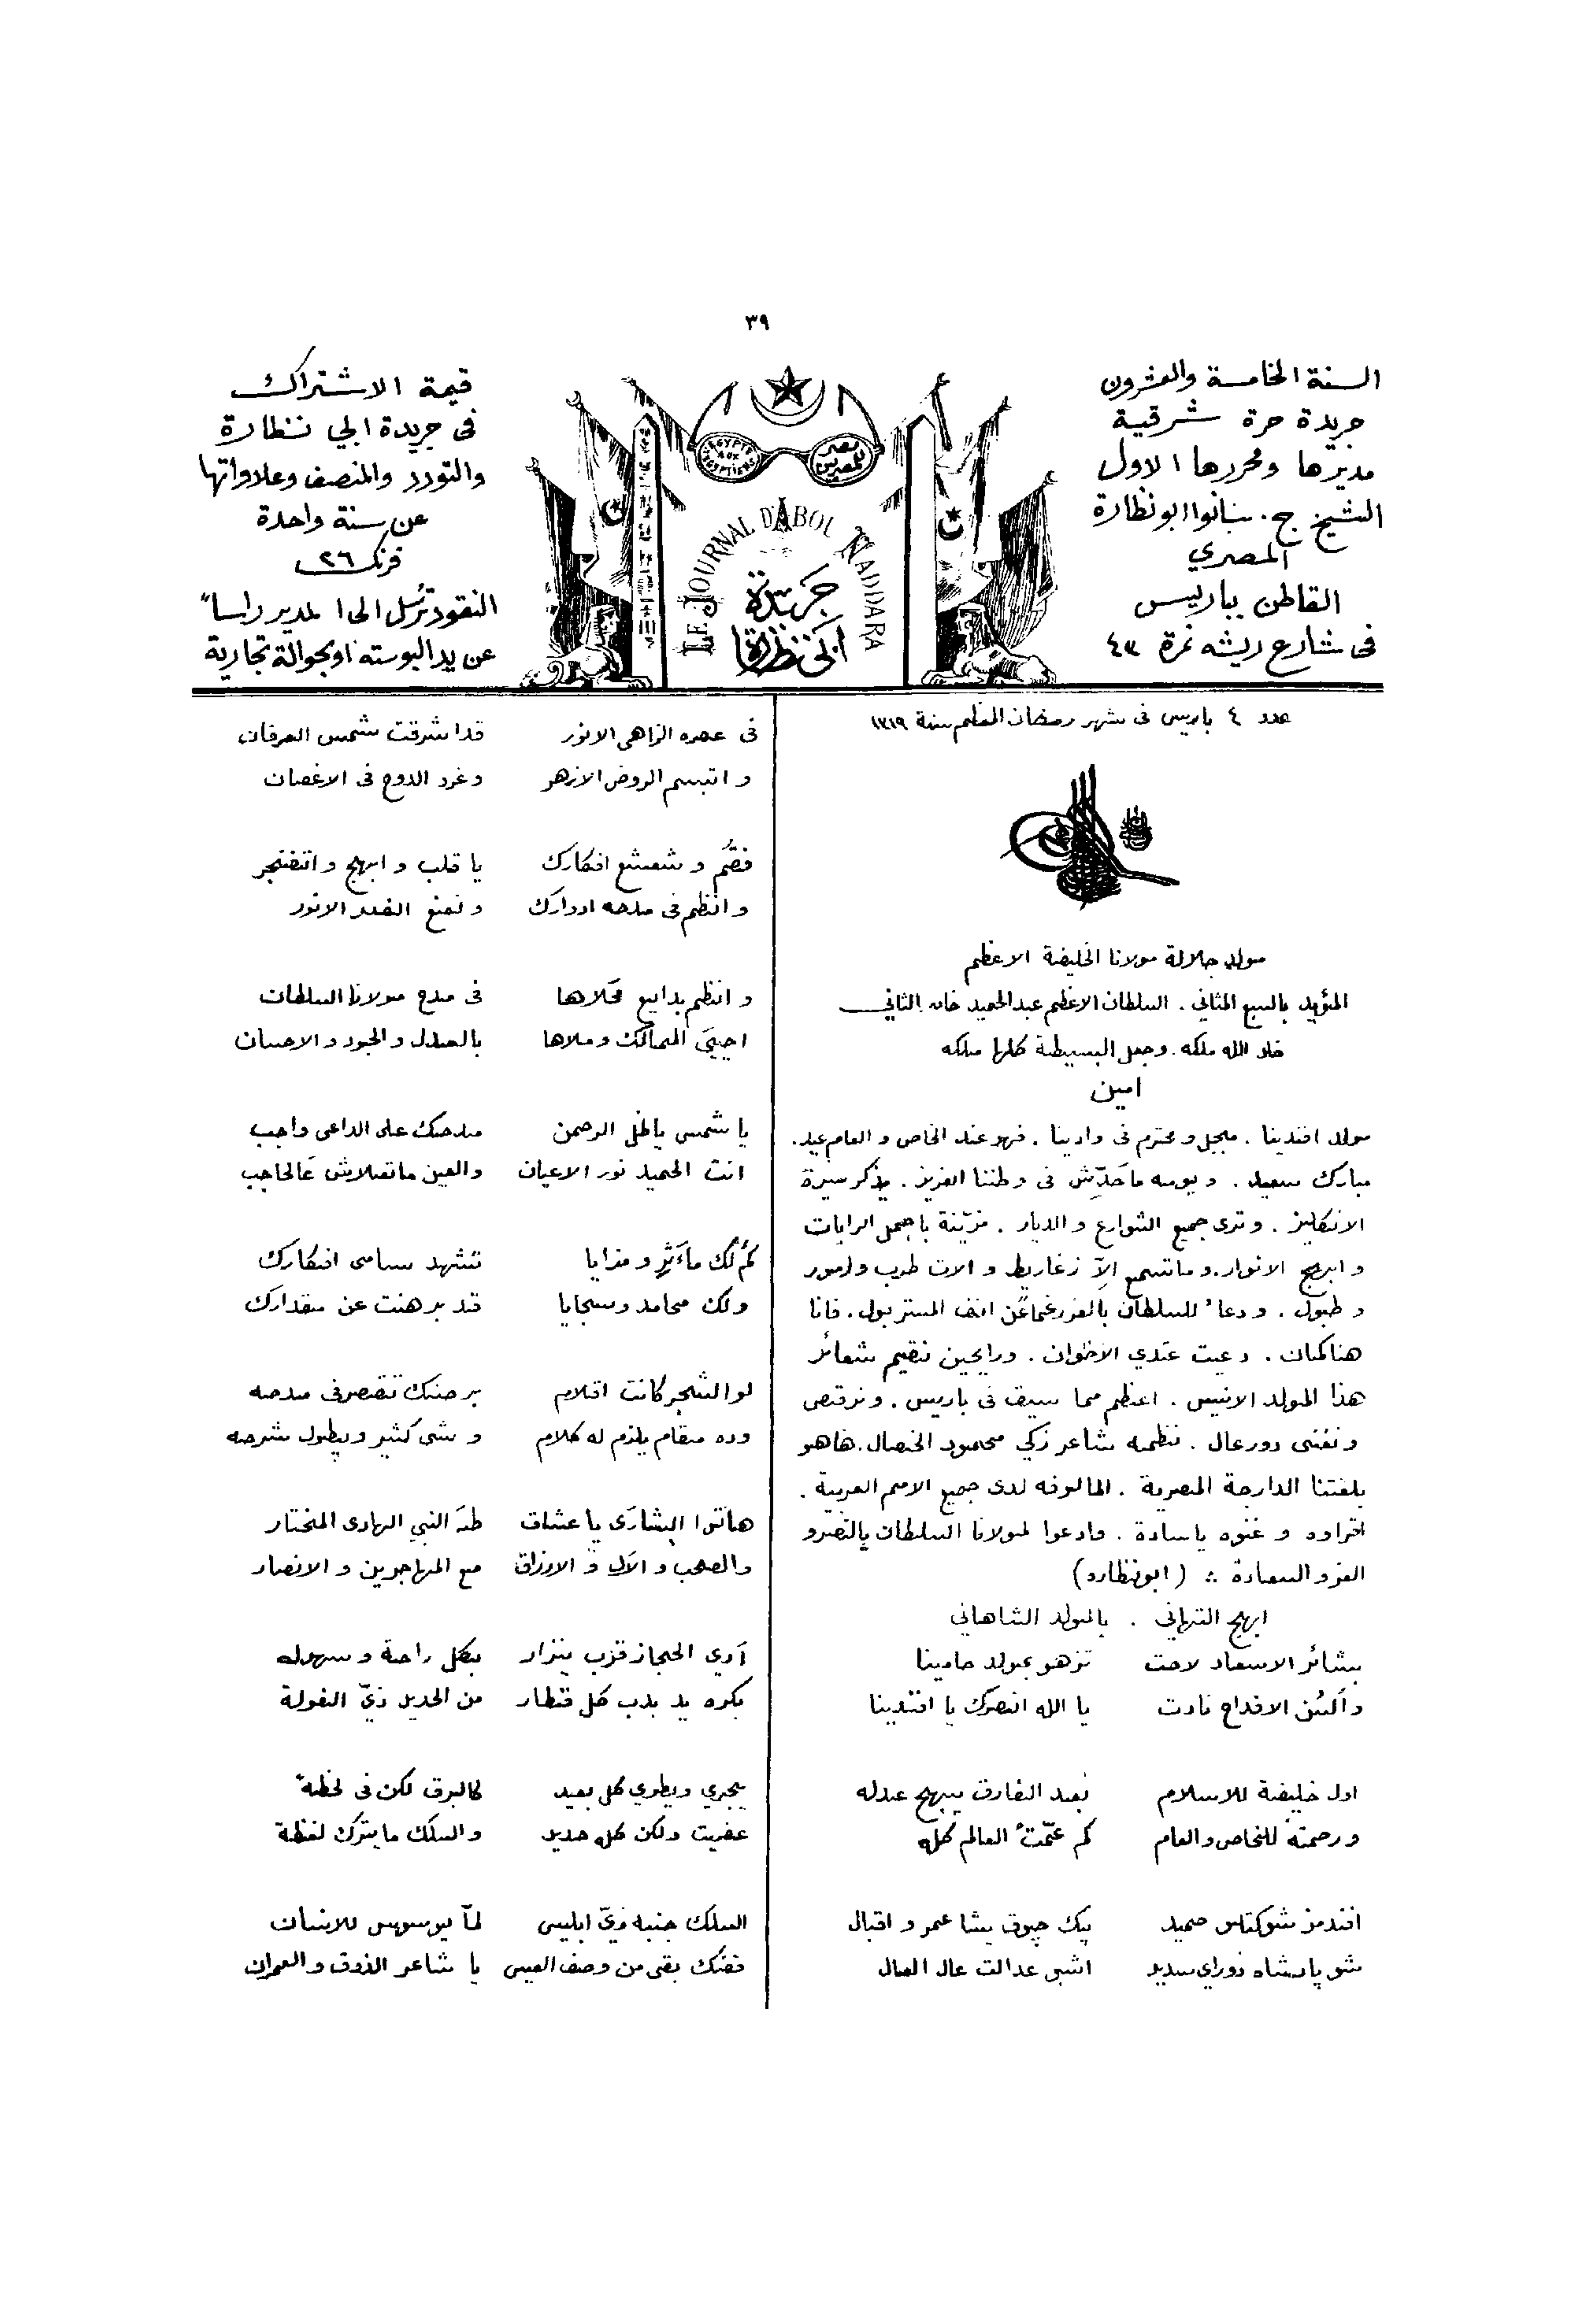 ٣٩
السنة الخامسة والعشرون
جريدة حرة شرقية
مديرها ومحررها الاول
الشيخ ج. سانوا ابو نظارة
المصري
القاطن بباريس
فى شارع ريشه نمرة ٤٣
EGYPTE AUX EGYPTIENS
مصر للمصريين
LE JOURNAL D'ABOU NADDARA
جريدة
ابى نظارة
قيمة الاشتراك
فى جريدة ابي نظارة
والتودد والمنصف وعلاواتها
عن سنة واحدة
فرنك ٢٦
النقود ترسل الى المدير راساً
عن يد البوسته او بحوالة تجارية
عدد ٤ باريس فى شهر رمضان المعظم سنة ١٣١٩
مولد جلالة مولانا الخليفة الاعظم
المؤيد بالسبع المثاني . السلطان الاعظم عبد الحميد خان الثاني
خلد الله ملكه . وجعل البسيطة كلها ملكه
امين
مولد افندينا . مبجل ومحترم فى وادينا . فهو عند الخاص والعام عيد .
مبارك سعيد . ويومه ما حدّش فى وطننا العزيز . يذكر سيرة
الانكليز . وترى جميع الشوارع والديار . مزيّنة باجمل الرايات
وابهج الانوار . وما تسمع الاّ زغاريط والات طرب وزمور
وطبول . ودعاء للسلطان بالعز رغماً عن انف المستر بول . فانا
هنا كمان . دعيت عندي الاخوان . ورايحين نقيم شعائر
هذا المولد الانيس . اعظم مما سبق فى باريس . ونرقص
ونغنى دور عال . نظمه شاعر زكي محمود الخصال . هاهو
بلغتنا الدارجة المصرية . المالوفه لدى جميع الامم العربية .
اقراوه وغنوه يا سادة . وادعوا لمولانا السلطان بالنصر و
العز والسعادة ∴ (ابو نظاره)
ابهج التهاني . بالمولد الشاهاني
بشائر الاسعاد لاحت تزهو بمولد حامينا
وألسُن الافداح نادت يا الله انصرك يا افندينا
اول خليفة للاسلام بعد الفارق يبهج عدله
ورحمته للخاص والعام كم عمّت العالم كله
افندمز شوكتلو حميد پك چوق يشا عمر و اقبال
شو پادشاه ذوراي سديد اشبو عدالت عال العال
فى عصره الزاهى الانور قد اشرقت شمس العرفان
وابتسم الروض الازهر وغرد الدوح فى الاغصان
فقم وشعشع افكارك يا قلب وابهج وافتخر
وانظم فى مدحه ادوارك الانور
وانظم بدايع محلاها فى مدح مولانا السلطان
احيى الممالك وملاها بالعدل والجود والاحسان
يا شمس يا ظل الرحمن مدحك على الداعى واجب
انت الحميد نور الاعيان والعين ما تعلاش عالحاجب
كم لك مآثر ومزايا تشهد بسامى افكارك
ولك محامد وسجايا قد برهنت عن مقدارك
لو الشجر كانت اقلام برضك تقصر فى مدحه
وده مقام يلزم له كلام وشى كثير ويطول شرحه
هاتوا البشارى يا عشاق طه النبي الهادى المختار
والصحب والآل و الارزاق مع المهاجرين والانصار
آدي الحجاز قرب ينزار بكل راحة وسهوله
بكره يد بدب كل قنطار من الحديد زيّ الغولة
يجري ويطوي كل بعيد كالبرق لكن فى لحظه
عفريت ولكن كله حديد والسلك ما يترك لفظة
السلك جنبه زيّ ابليس لمّا يوسوس للانسان
فضك بقى من وصف العيس يا شاعر الذوق والعمران